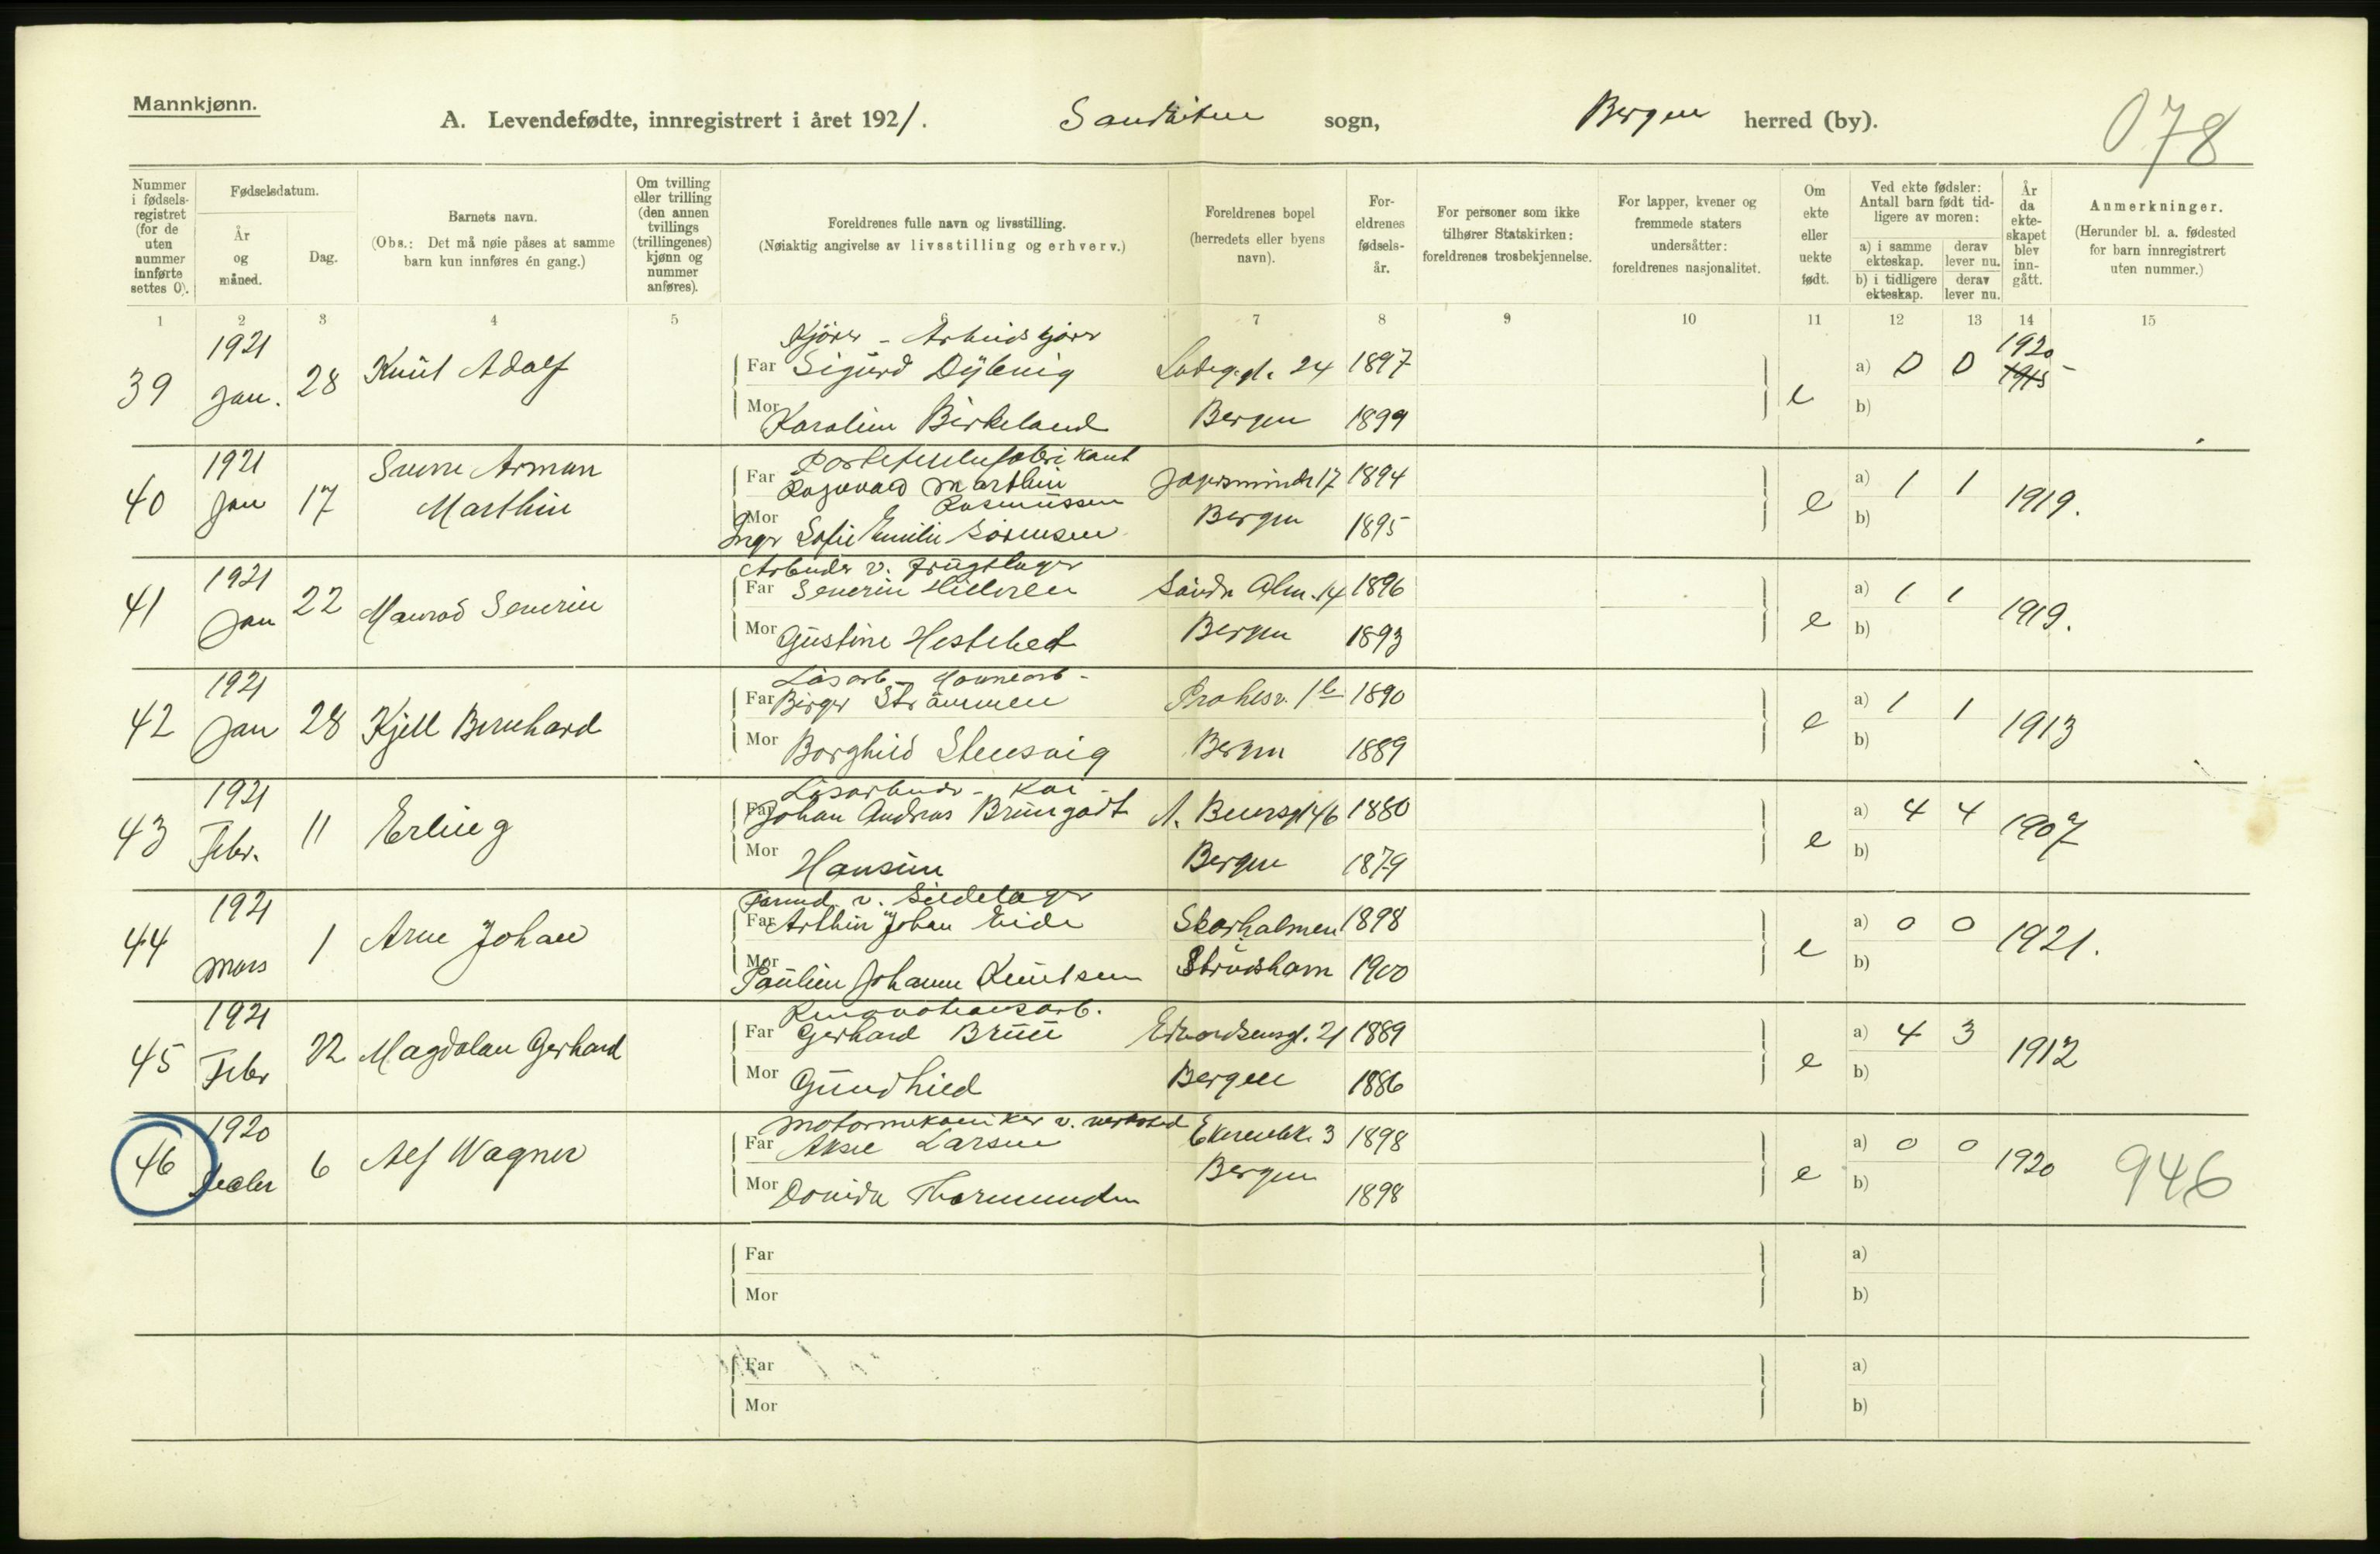 Mannkjønn.
A. Levendefødte, innregistrert i året 1921. Sandviken sogn, Bergen herred (by).
078
Nummer i fødselsregistret (for de uten nummer innførte settes 0).
Fødselsdatum.
År og måned.
Dag.
Barnets navn.
(Obs.: Det må nøie påses at samme barn kun innføres én gang.)
Om tvilling eller trilling (den annen tvillings (trillingenes) kjønn og nummer anføres).
Foreldrenes fulle navn og livsstilling.
(Nøiaktig angivelse av livsstilling og erhverv.)
Foreldrenes bopel (herredets eller byens navn).
For-eldrenes fødsels-år.
For personer som ikke tilhører Statskirken: foreldrenes trosbekjennelse.
For lapper, kvener og fremmede staters undersåtter: foreldrenes nasjonalitet.
Om ekte eller uekte født.
Ved ekte fødsler: Antall barn født tidligere av moren:
a) i samme ekteskap. derav lever nu.
b) i tidligere ekteskap. derav lever nu.
År da ekteskapet blev inngått.
Anmerkninger.
(Herunder bl. a. fødested for barn innregistrert uten nummer.)
1 2 3 4 5 6 7 8 9 10 11 12 13 14 15
39 1921 Jan. 28 Knut Adolf
Kjører - Arbeidskjører
Far Sigurd Dyking 24 1897
Mor Karoline Birkeland Bergen 1899
e a) 0 0 1920 1915
b)
40 1921 Jan 17 Sverre Arman Marthin
Portefeuillefabrikant
Far Ragnvald Marthin Rasmussen 17 1894
Mor Inga Sofie Emilie Sørensen Bergen 1895
e a) 1 1 1919.
b)
41 1921 Jan 22 Manrad Severin
Arbeider v. Frugtlager
Far Severin Hilleren Søndre Alm. 14 1896
Mor Gustine Hestehed Bergen 1893
e a) 1 1 1919.
b)
42 1921 Jan 28 Kjell Bernhard
Løsarb. - Havnearb -
Far Birger Strømmen 1b 1890
Mor Borghild Stensvig Bergen 1889
e a) 1 1 1913
b)
43 1921 Febr. 11 Erling
Løsarbeider - Kai -
Far Johan Andreas Brungodt 46 1880
Mor Hansine Bergen 1879
e a) 4 4 1907
b)
44 1921 Mars 1 Arne Johan
Formd. v. Sildelager
Far Arthur Johan Eide Skarholmen 1898
Mor Pauline Johanne Knutsen Strusham 1900
e a) 0 0 1921.
b)
45 1921 Febr 22 Magdolan Gerhard
Renovationsarb.
Far Gerhard Bruu Edvardsensgt. 21 1889
Mor Gundhild Bergen 1886
e a) 4 3 1912
b)
46 1920 Decbr 6 Alf Wagner
Motormekaniker v. verksted
Far Aksel Larsen 3 1898
Mor Dorida Thormundsen Bergen 1898
e a) 0 0 1920 946
b)
Far a)
Mor b)
Far a)
Mor b)